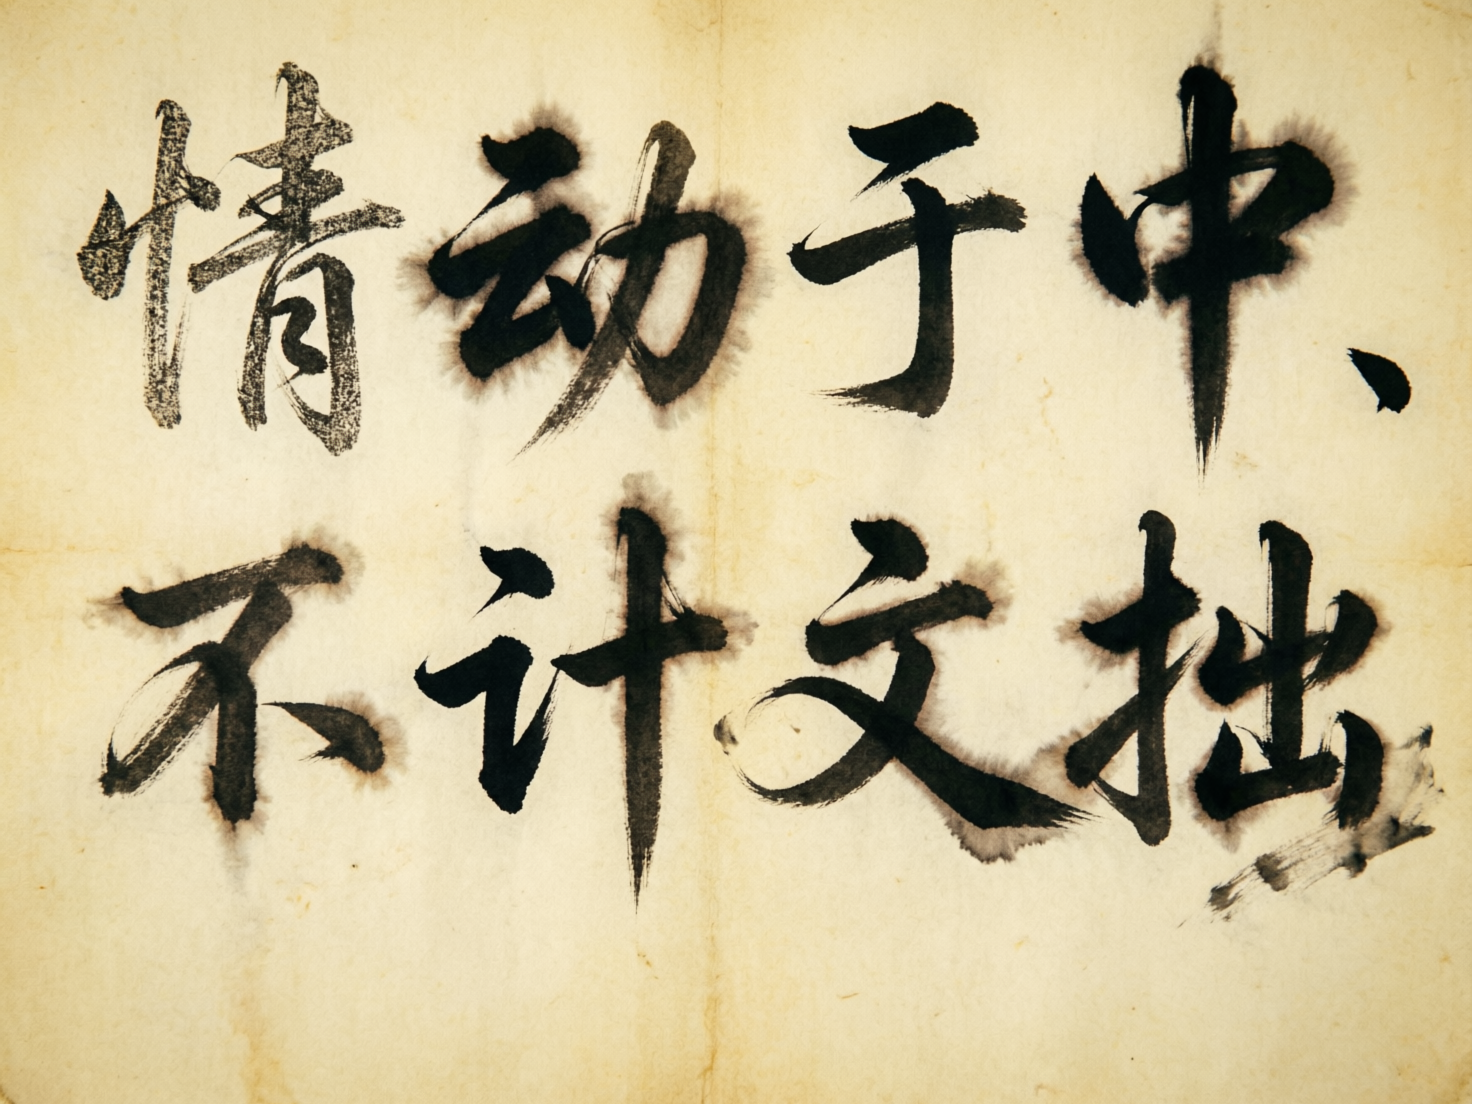 情动于中、
不计文拙